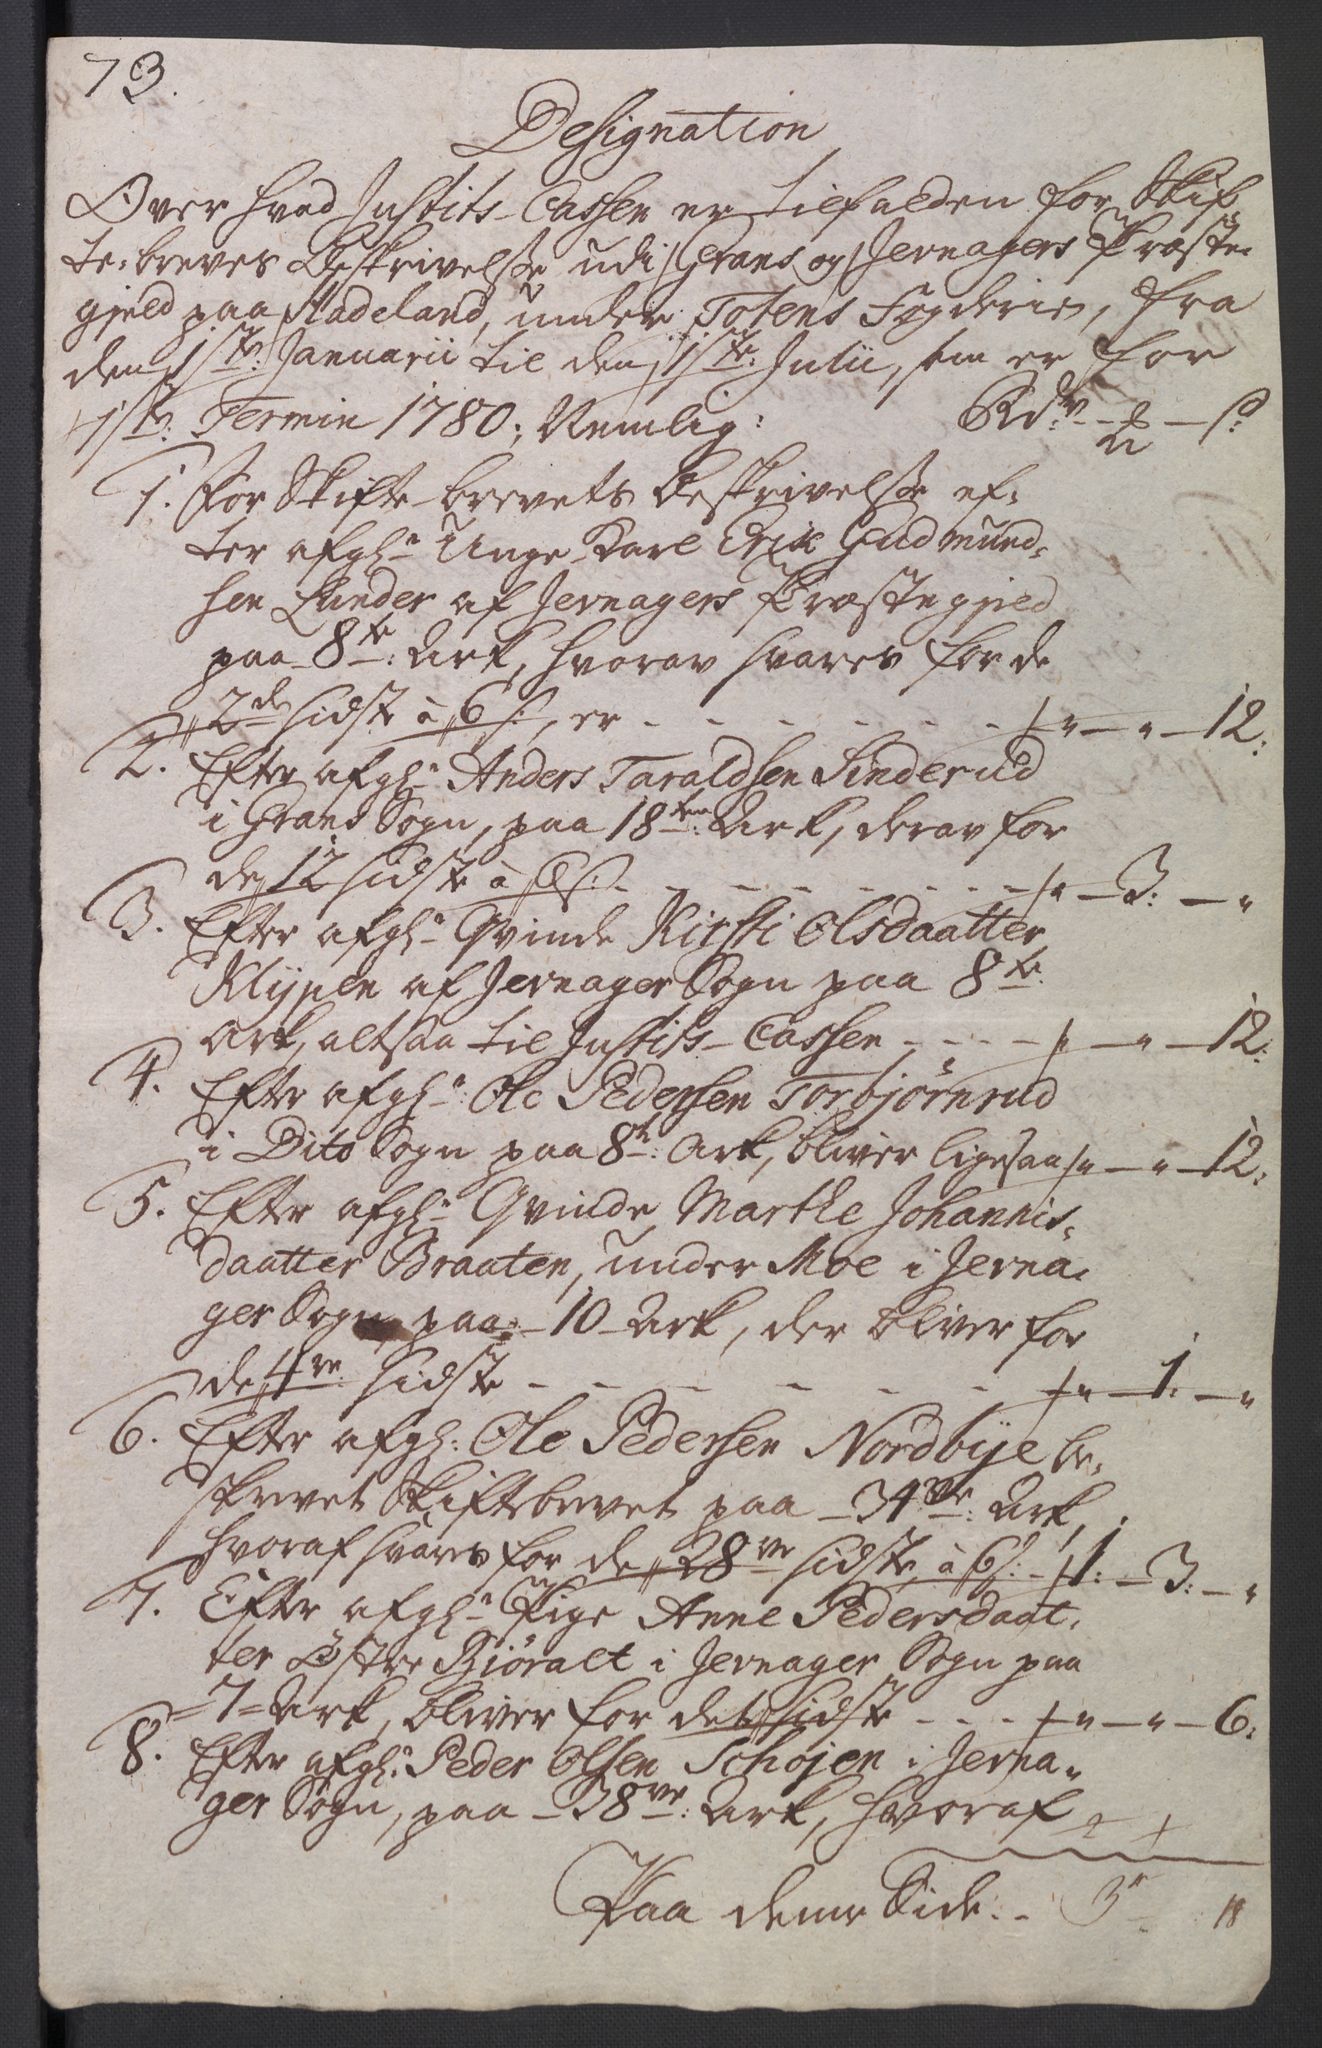 73.
Designation
Over hvad Justits-Cassen er tilfalden for Skif
te-breves Beskrivelse udi Grans og Jevnagers Præste-
gjeld paa Hadeland, under Totens Fogderie, fra
den 1ste Januarii til den 1ste Julii, som er for
1ste Termin 1780; Nemlig: Rdr - - s:
1. For Skifte-brevets Beskrivelse ef-
ter afgl: Unge Karl Erik Gudmund-
sen Lunder af Jevnagers Præstegjeld
paa 8te: Ark, hvorav svares for de
2de sidste à 6 s:, er - - - - - " - " - 12:
2. Efter afgl: Anders Taraldsen Sinderud
i Grans Sogn, paa 18ten: Ark, derav for
de 12 sidste à 6 s: - - - - - " - 3: - "
3. Efter afgl: Qvinde Kirsti Olsdaatter
Klypen af Jevnager Sogn paa 8te
Ark, altsaa til Justits-Cassen - - - " - " - 12:
4. Efter afgl: Ole Pedersen Torbjørnrud
i Dito Sogn paa 8te: Ark, bliver ligesaa " - " - 12:
5. Efter afgl: Qvinde Marthe Johannis-
daatter Braaten, under Moe i Jevna-
ger Sogn, paa - 10 - Ark, der bliver for
de 4re: sidste - - - - - " - 1: - "
6. Efter afgl: Ole Pedersen Nordbye be-
skrevet Skiftebrevet paa - 34re: Ark,
hvoraf svares for de 28ve sidste, à 6 s: - 1: - 3: - "
7. Efter afgl: Pige Anne Pedersdaat-
ter Østre Bjøralt i Jevnager Sogn paa
= 7 = Ark, bliver for det sidste - - - " - " - 6:
8. Efter afgl: Peder Olsen Schøjen i Jevna-
ger Sogn, paa - 38ve: Ark, hvoraf
Paa denne Side: - 3 " 18